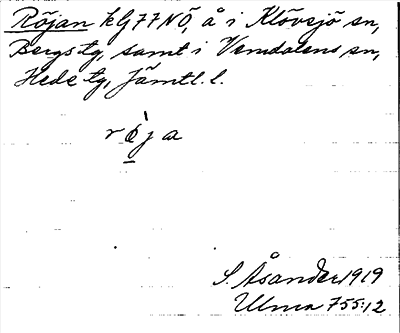 Röjan kG77NÖ, å i Klövsjö sn,
Bergs tg, samt i Vemdalens sn,
Hede tg, Jämtl. l.
röja
S. Åsander 1919
Ulma 755:12